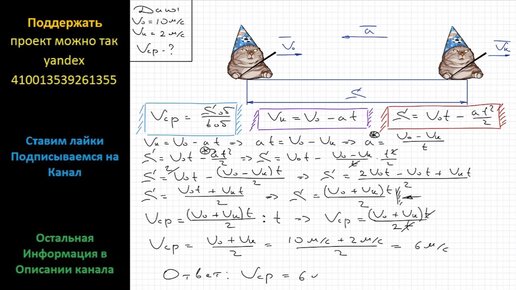 Поддержать
проект можно так
yandex
410013539261355
Ставим лайки
Подписываемся на
Канал
Остальная
Информация в
Описании канала
Дано:
V₀ = 10 м/с
Vк = 2 м/с
Vср - ?
V₀
a
Vк
S
Vср = Sоб/tоб
Vк = V₀ - at
S = V₀t - at²/2
Vк = V₀ - at => at = V₀ - Vк => a = (V₀ - Vк)/t
S = V₀t - at²/2 => S = V₀t - (V₀ - Vк)/t · t²/2
S = V₀t - (V₀ - Vк)t/2 => S = (2V₀t - V₀t + Vкt)/2
S = (V₀t + Vкt)/2 => S = (V₀ + Vк)t/2
Vср = (V₀ + Vк)t/2 : t => Vср = (V₀ + Vк)t/2t
Vср = (V₀ + Vк)/2 = (10 м/с + 2 м/с)/2 = 6 м/с
Ответ: Vср = 6